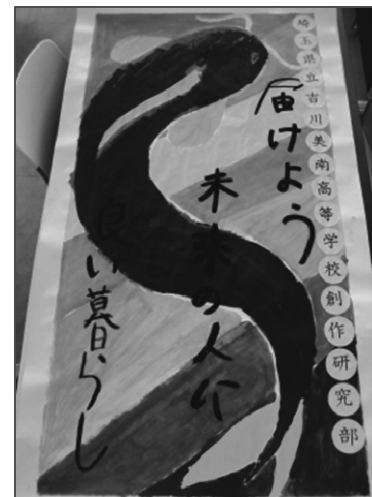 埼玉県立吉川美南高等学校創作研究部
届けよう
未来の人に
良い暮らし